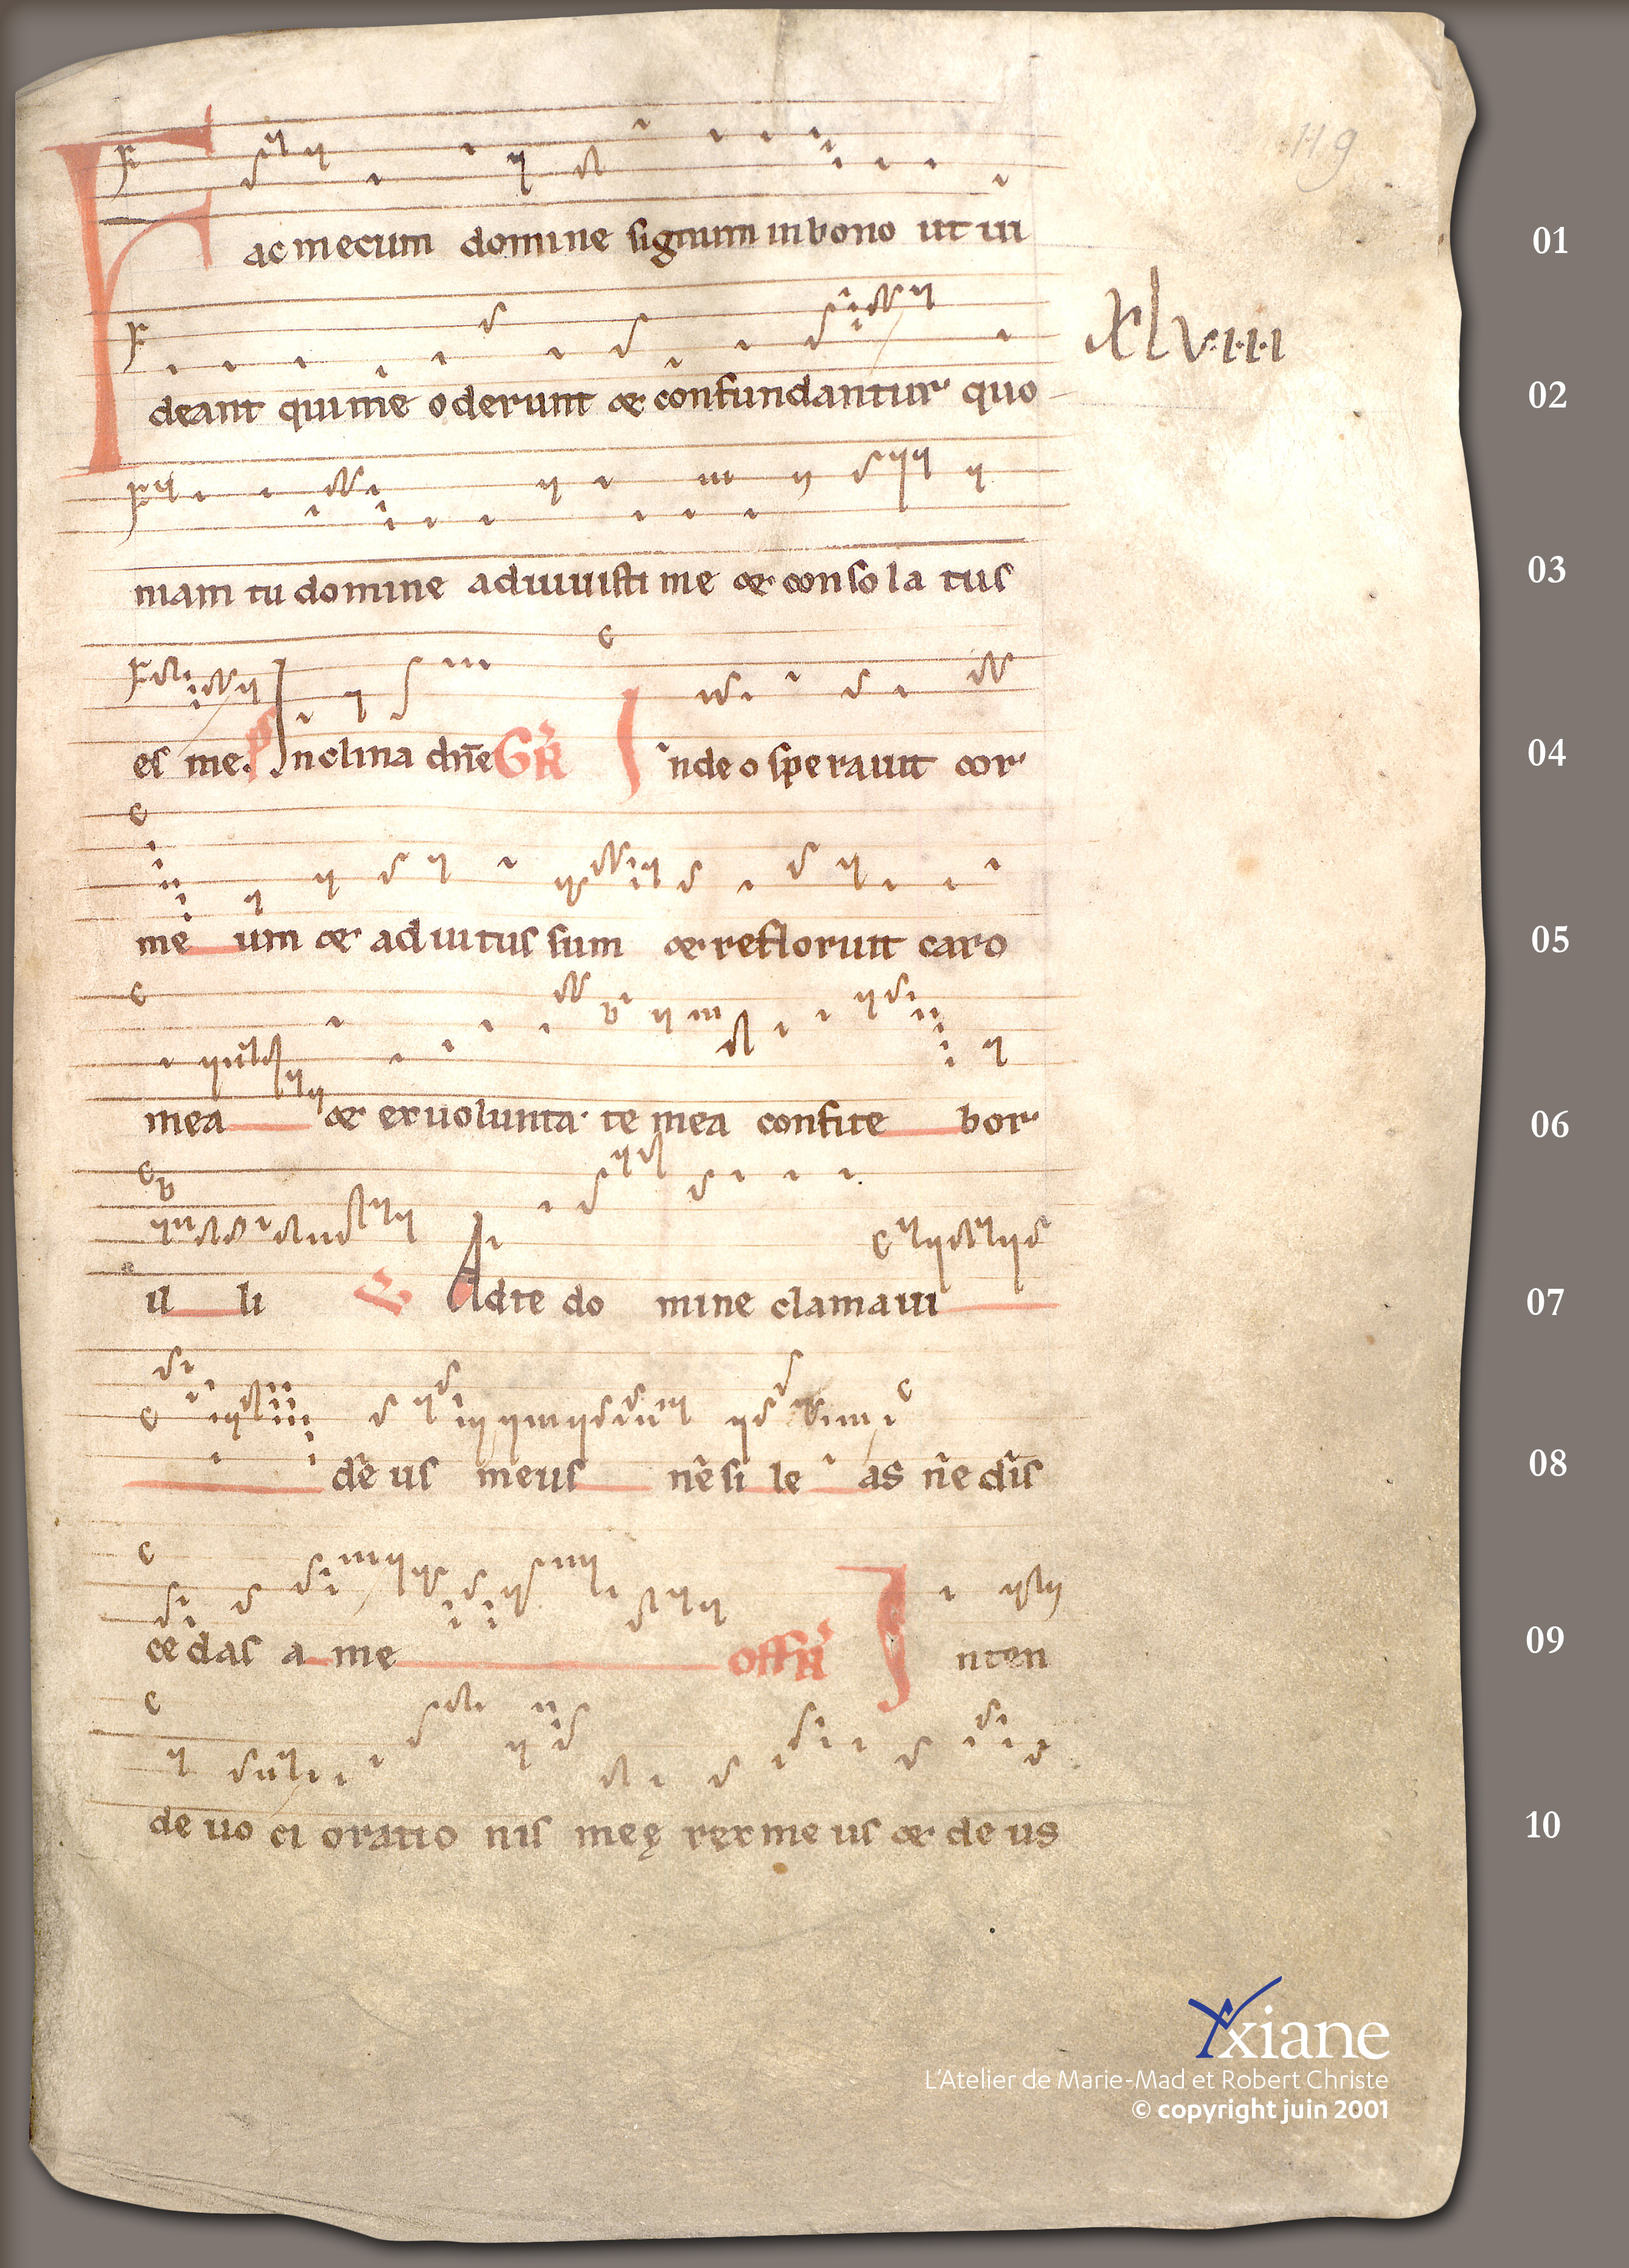 119
Fac mecum domine signum in bono ut ui
01
xlviiii
deant qui me oderunt & confundantur quo
02
niam tu domine adiuuisti me & conso la tus
03
es me. ps Inclina dñe GR̃ In deo sperauit cor
04
me um & adiutus sum & refloruit caro
05
mea & ex uolunta te mea confite bor
06
il li V Ad te do mine clamaui
07
de us meus ne si le as ne dis
08
ce das a me offR̃ Inten
09
de uo ci oratio nis meę rex me us & de us
10
Yxiane
L'Atelier de Marie-Mad et Robert Christe
© copyright juin 2001